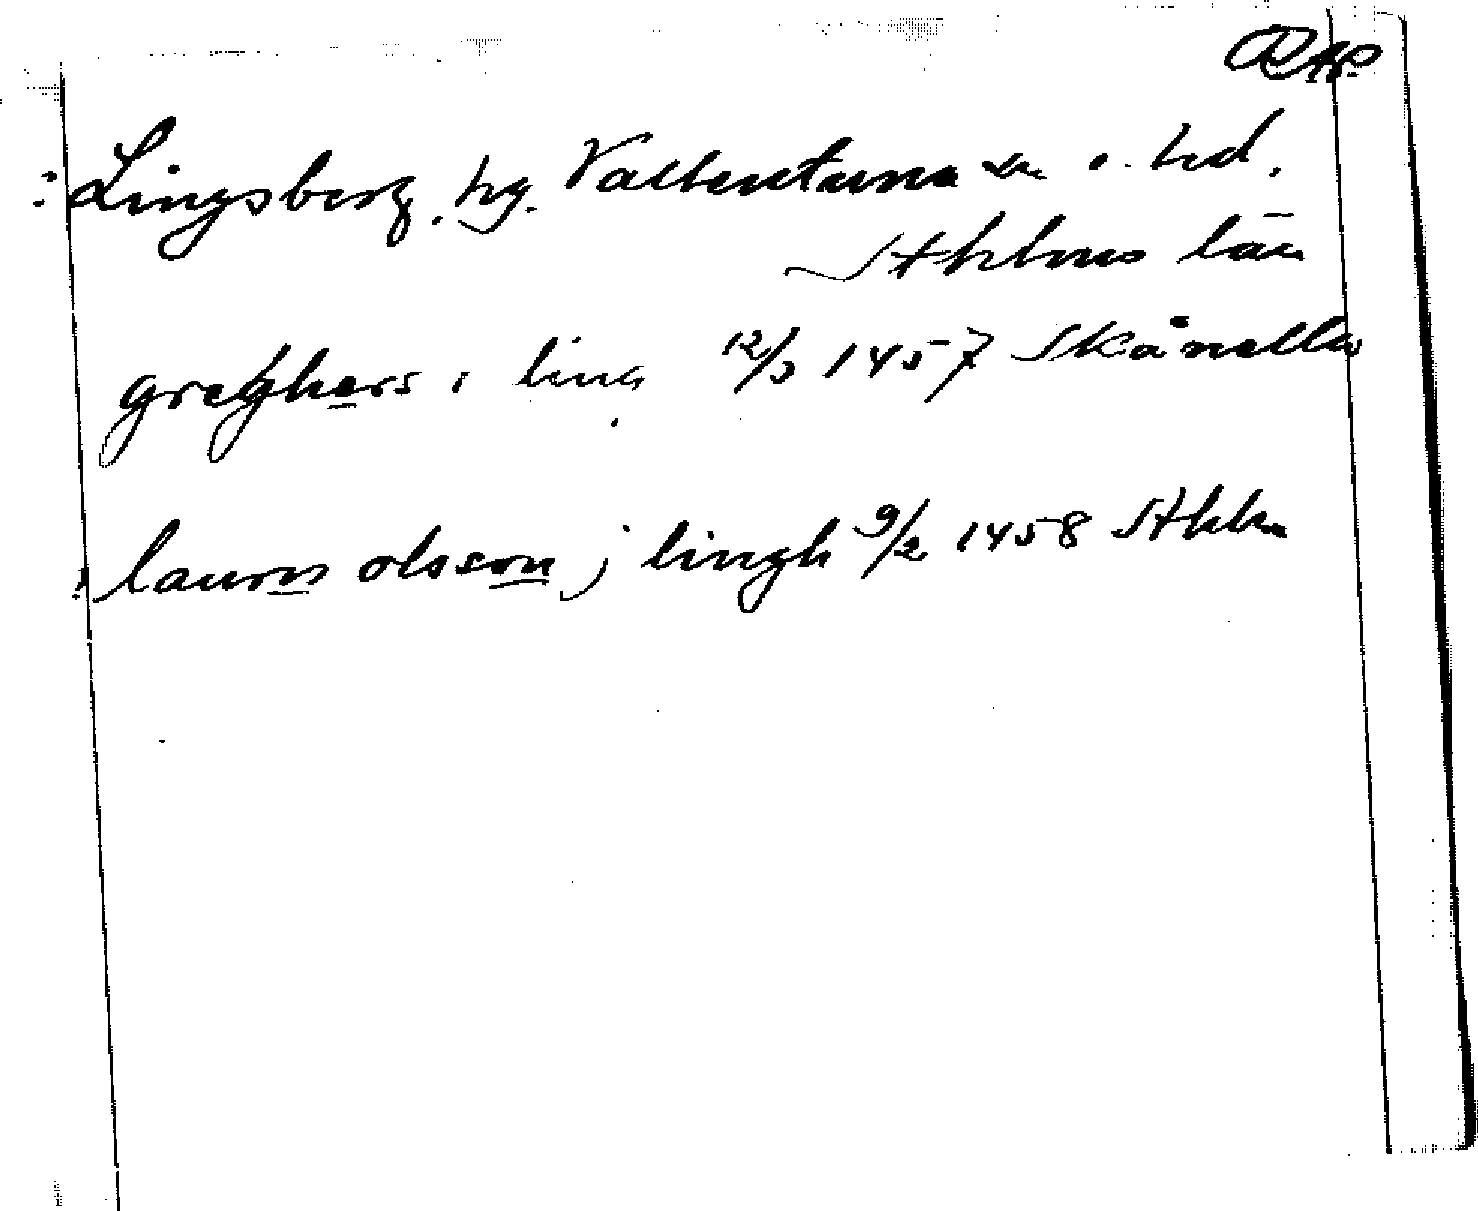 Lingsberg. hg. Vallentuna sn o. hd.
Sthlms län
greghers i ling 12/3 1457 Skånella
laurns olsson j lingh 9/2 1458 Sthlm